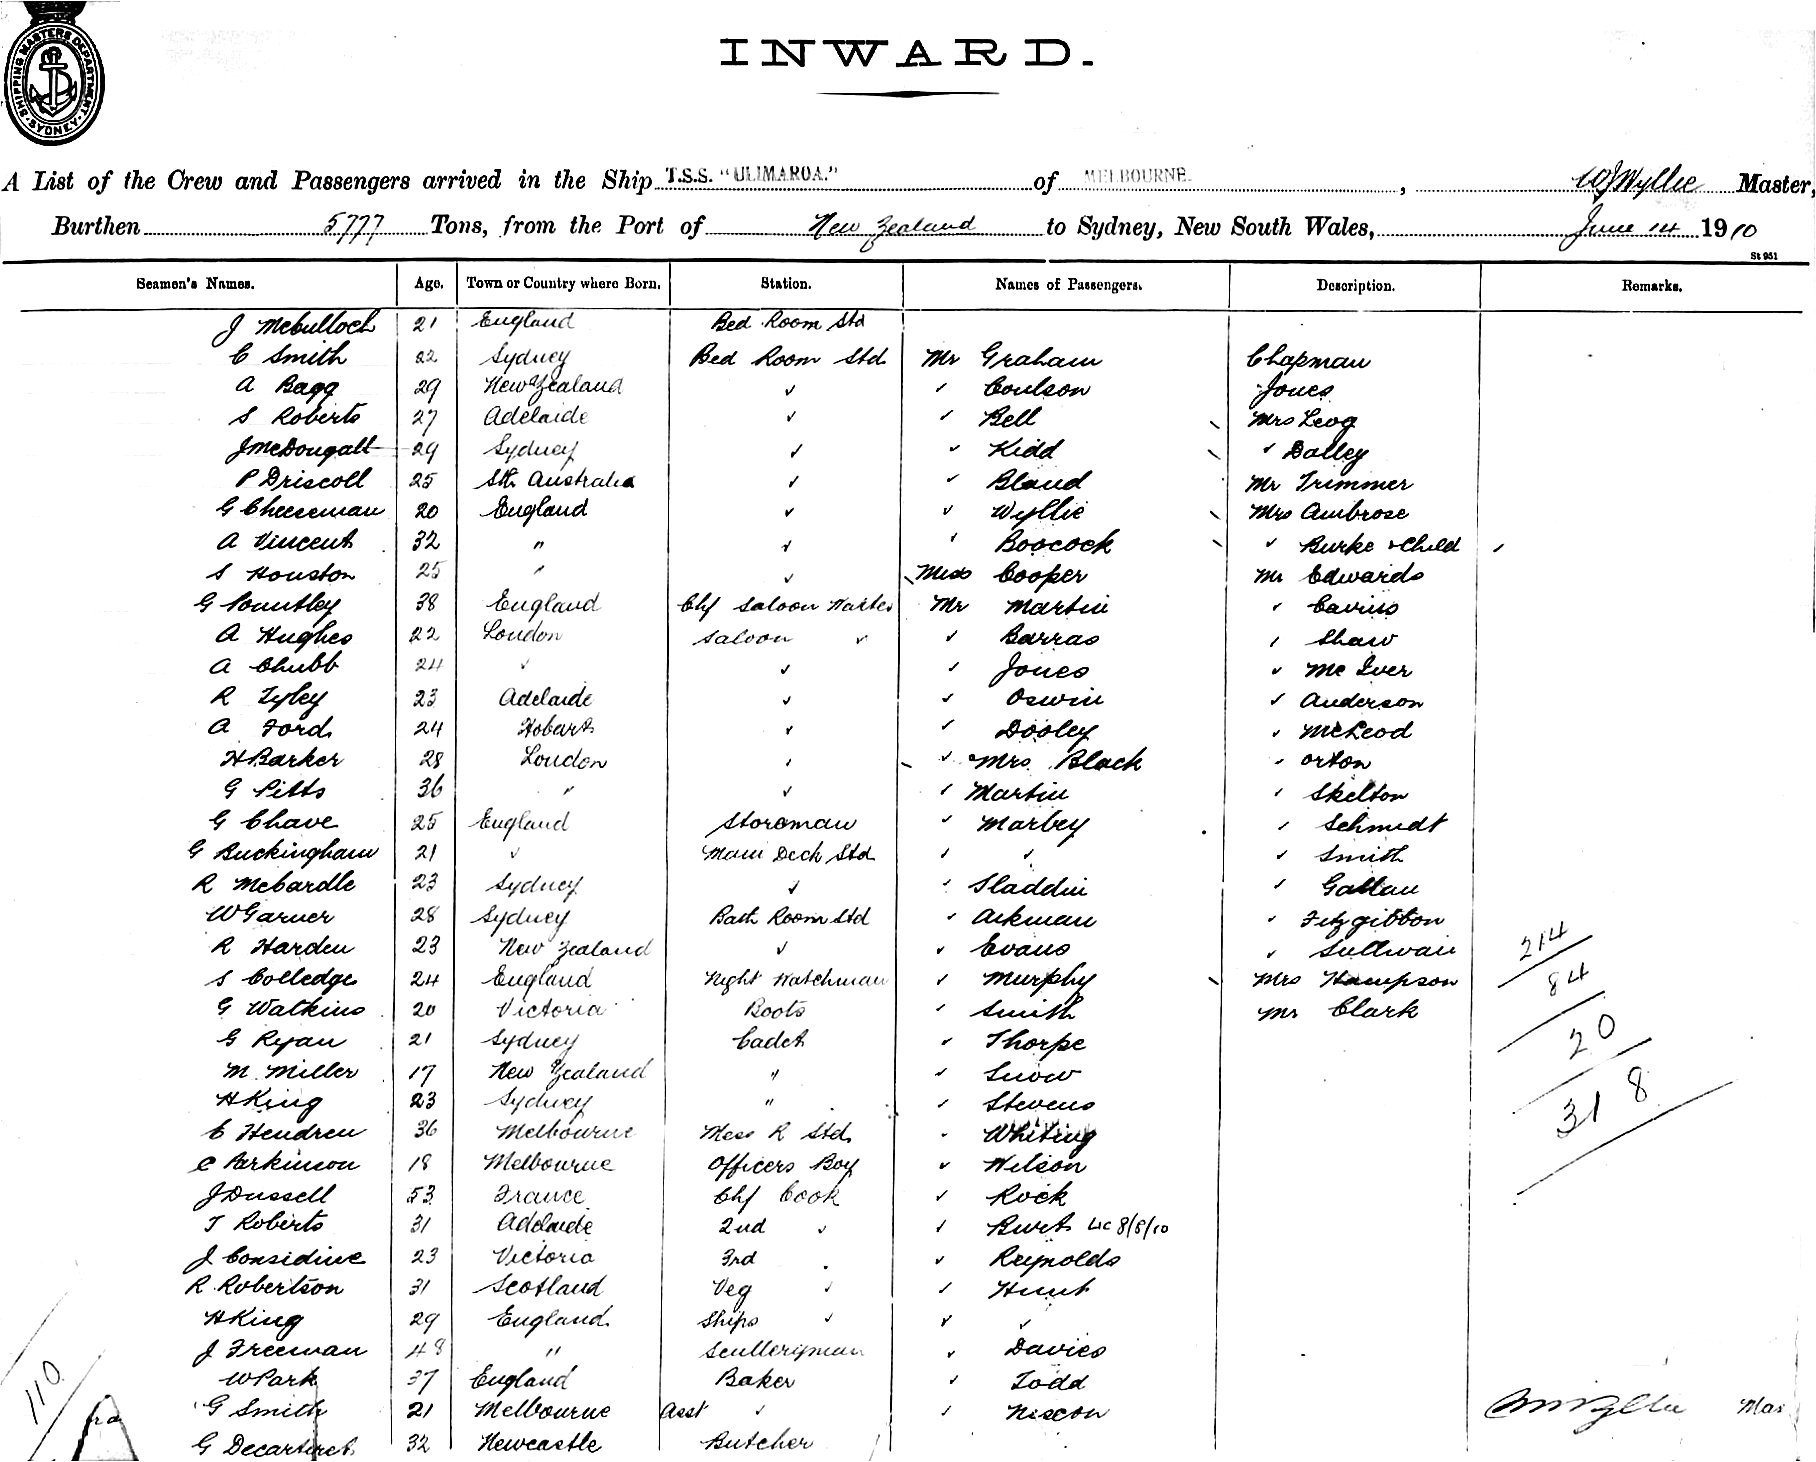 SHIPPING MASTERS DEPARTMENT
SYDNEY
INWARD.
A List of the Crew and Passengers arrived in the Ship T.S.S. "ULIMAROA." of MELBOURNE. , Wyllie Master,
Burthen 5777 Tons, from the Port of New Zealand to Sydney, New South Wales, June 14 1910
St 951
Seamen's Names. Age. Town or Country where Born. Station. Names of Passengers. Description. Remarks.
J McCulloch 21 England Bed Room Std
C Smith 22 Sydney Bed Room Std Mr Graham Chapman
A Bagg 29 New Zealand ✓ ✓ Coulson Jones
S Roberts 27 Adelaide ✓ ✓ Bell Mrs Levy
J McDougall 29 Sydney ✓ ✓ Kidd ✓ Dalley
P Driscoll 25 Sth Australia ✓ ✓ Bland Mr Trimmer
G Cheeseman 20 England ✓ ✓ Wyllie Mrs Ambrose
A Vincent 32 " ✓ ✓ Boocock ✓ Burke & Child
S Houston 25 " ✓ Miss Cooper Mr Edwards
G Pountley 38 England Chf Saloon Waiter Mr Martin ✓
A Hughes 22 London Saloon ✓ ✓ Barras ✓ Shaw
A Chubb 24 ✓ ✓ ✓ Jones ✓ McIver
R Tyley 23 Adelaide ✓ ✓ Oswin ✓ Anderson
A Ford 24 Hobart ✓ ✓ Dooley ✓ McLeod
H Barker 28 London ✓ ✓ Mrs. Black ✓ Orton
G Pitts 36 " ✓ ✓ Martin ✓ Skelton
G Chave 25 England Storeman ✓ Marbey ✓ Schmidt
G Buckingham 21 ✓ Main Deck Std ✓ ✓ ✓ Smith
R McCardle 23 Sydney ✓ ✓ Sladdin ✓
W Garner 28 Sydney Bath Room Std ✓ Aikman ✓ Fitzgibbon
R Harden 23 New Zealand ✓ ✓ Evans ✓ Sullivan
S Colledge 24 England Night Watchman ✓ Murphy Mrs Hampson
G Watkins 20 Victoria Boots ✓ Smith Mr Clark
G Ryan 21 Sydney Cadet ✓ Thorpe
M. Miller 17 New Zealand " ✓ Snow
H King 23 Sydney " ✓ Stevens
C Hendren 36 Melbourne Mess R Std ✓ Whiting
C Parkinson 18 Melbourne Officers Boy ✓ Wilson
J Dussell 53 France Chf Cook ✓ Rock
T Roberts 31 Adelaide 2nd ✓ ✓ Burt 8/8/10
J Considine 23 Victoria 3rd ✓ Reynolds
R Robertson 31 Scotland Veg ✓ ✓ Hunt
H King 29 England Ships ✓ ✓ ✓
J Freeman 48 " Sculleryman ✓ Davies
W Park 37 England Baker ✓ Todd
G Smith 21 Melbourne Asst ✓ ✓ Nixon
G Decarteret 32 Newcastle Butcher
214
84
20
318
110
Mas